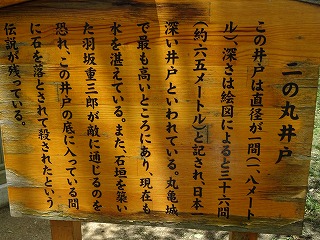 二の丸井戸
この井戸は直径が一間(一、八メート
ル)、深さは絵図によると三十六間
(約六五メートル)と記され、日本一
深い井戸といわれている。丸亀城
で最も高いところにあり、現在も
水を湛えている。また、石垣を築い
た羽坂重三郎が敵に通じるのを
恐れ、この井戸の底に入っている間
に石を落とされて殺されたという
伝説が残っている。